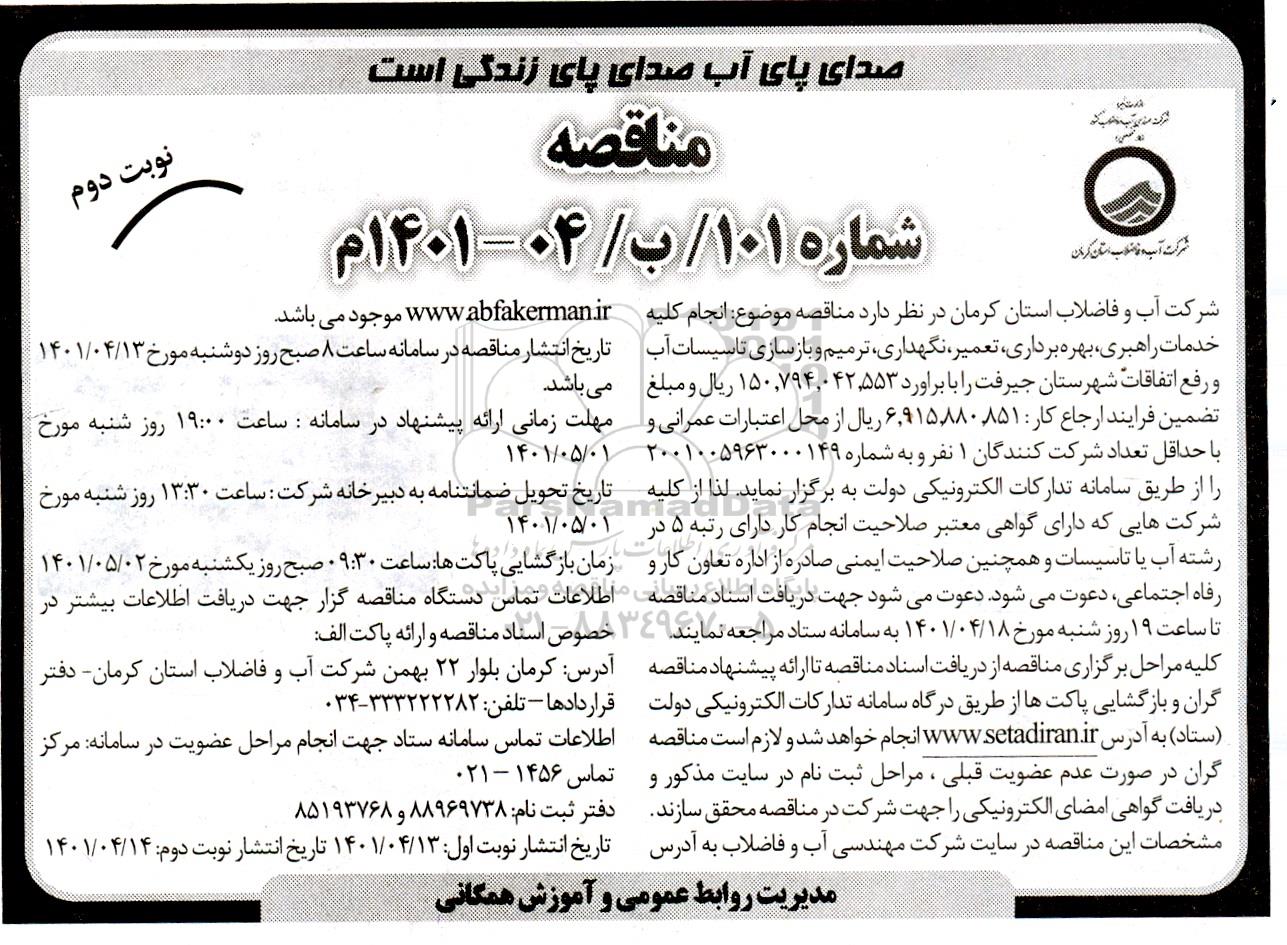 صدای پای آب صدای پای زندگی است
شرکت آب و فاضلاب استان کرمان
نوبت دوم
مناقصه
شماره ۱۰۱/ ب/ ۰۴ – ۱۴۰۱م
شرکت آب و فاضلاب استان کرمان در نظر دارد مناقصه موضوع: انجام کلیه
خدمات راهبری، بهره برداری، تعمیر، نگهداری، ترمیم و بازسازی تاسیسات آب
و رفع اتفاقات شهرستان جیرفت را با براورد ۱۵۰,۷۹۴,۰۴۲,۵۵۳ ریال و مبلغ
تضمین فرایند ارجاع کار : ۶,۹۱۵,۸۸۰,۸۵۱ ریال از محل اعتبارات عمرانی و
با حداقل تعداد شرکت کنندگان ۱ نفر و به شماره ۲۰۰۱۰۰۵۹۶۳۰۰۰۱۴۹
را از طریق سامانه تدارکات الکترونیکی دولت به برگزار نماید. لذا از کلیه
شرکت هایی که دارای گواهی معتبر صلاحیت انجام کار دارای رتبه ۵ در
رشته آب یا تاسیسات و همچنین صلاحیت ایمنی صادره از اداره تعاون کار و
رفاه اجتماعی، دعوت می شود. دعوت می شود جهت دریافت اسناد مناقصه
تا ساعت ۱۹ روز شنبه مورخ ۱۴۰۱/۰۴/۱۸ به سامانه ستاد مراجعه نمایند.
کلیه مراحل برگزاری مناقصه از دریافت اسناد مناقصه تا ارائه پیشنهاد مناقصه
گران و بازگشایی پاکت ها از طریق درگاه سامانه تدارکات الکترونیکی دولت
(ستاد) به آدرس www.setadiran.ir انجام خواهد شد و لازم است مناقصه
گران در صورت عدم عضویت قبلی ، مراحل ثبت نام در سایت مذکور و
دریافت گواهی امضای الکترونیکی را جهت شرکت در مناقصه محقق سازند.
مشخصات این مناقصه در سایت شرکت مهندسی آب و فاضلاب به آدرس
www.abfakerman.ir موجود می باشد.
تاریخ انتشار مناقصه در سامانه ساعت ۸ صبح روز دوشنبه مورخ ۱۴۰۱/۰۴/۱۳
می باشد.
مهلت زمانی ارائه پیشنهاد در سامانه : ساعت ۱۹:۰۰ روز شنبه مورخ
۱۴۰۱/۰۵/۰۱
تاریخ تحویل ضمانتنامه به دبیرخانه شرکت : ساعت ۱۳:۳۰ روز شنبه مورخ
۱۴۰۱/۰۵/۰۱
زمان بازگشایی پاکت ها: ساعت ۰۹:۳۰ صبح روز یکشنبه مورخ ۱۴۰۱/۰۵/۰۲
اطلاعات تماس دستگاه مناقصه گزار جهت دریافت اطلاعات بیشتر در
خصوص اسناد مناقصه و ارائه پاکت الف:
آدرس: کرمان بلوار ۲۲ بهمن شرکت آب و فاضلاب استان کرمان- دفتر
قراردادها – تلفن: ۳۳۳۲۲۲۲۸۲-۰۳۴
اطلاعات تماس سامانه ستاد جهت انجام مراحل عضویت در سامانه: مرکز
تماس ۱۴۵۶ – ۰۲۱
دفتر ثبت نام: ۸۸۹۶۹۷۳۸ و ۸۵۱۹۳۷۶۸
تاریخ انتشار نوبت اول: ۱۴۰۱/۰۴/۱۳ تاریخ انتشار نوبت دوم: ۱۴۰۱/۰۴/۱۴
مدیریت روابط عمومی و آموزش همگانی
ParsNamadData
پایگاه اطلاع رسانی مناقصه و مزایده
۰۲۱-۸۸۳۴۹۶۷۰-۵